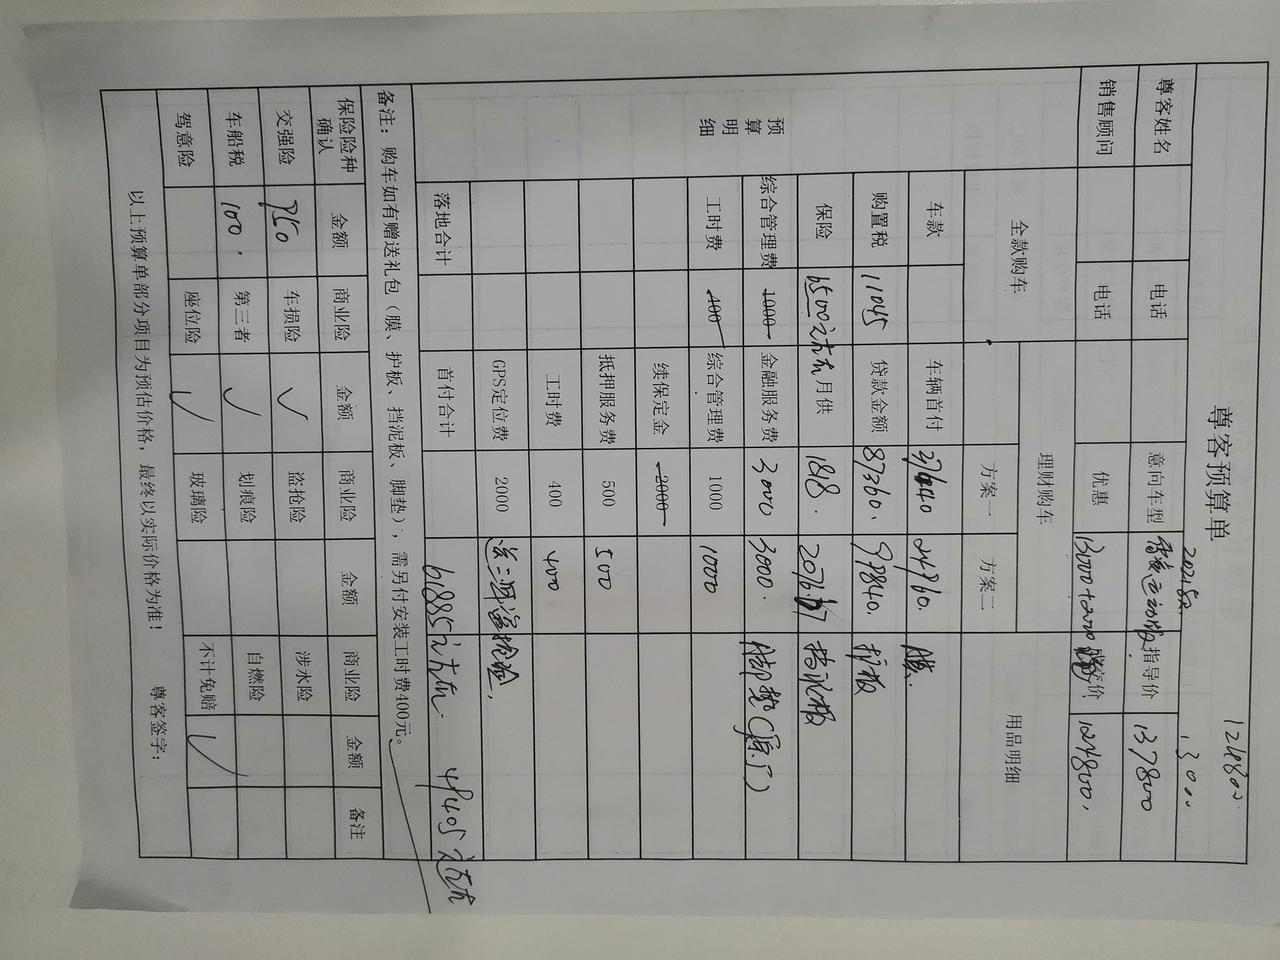 尊客预算单
124800.
13000
2021款
尊客姓名 电话 意向车型 运动版 指导价 137800
销售顾问 电话 优惠 13000+2000 成交价 124800.
预算明细 全款购车 理财购车 用品明细
方案一 方案二
车款 车辆首付 37440 24960. 膜.
购置税 11045 贷款金额 87360. 99840. 护板
保险 6500元左右 月供 1818. 2076.67 挡泥板
综合管理费 1000 金融服务费 3000 3000. 脚垫(原厂)
工时费 400 综合管理费 1000 1000
续保定金 2000
抵押服务费 500 500
工时费 400 400
GPS定位费 2000 送三年盗抢险.
落地合计 首付合计 61885元左右. 49405元左右
备注：购车如有赠送礼包（膜、护板、挡泥板、脚垫），需另付安装工时费400元。
保险险种确认 金额 商业险 金额 商业险 金额 商业险 金额 备注
交强险 950 车损险 ✓ 盗抢险 涉水险
车船税 100. 第三者 ✓ 划痕险 自燃险
驾意险 座位险 ✓ 玻璃险 不计免赔 ✓
以上预算单部分项目为预估价格，最终以实际价格为准！ 尊客签字：